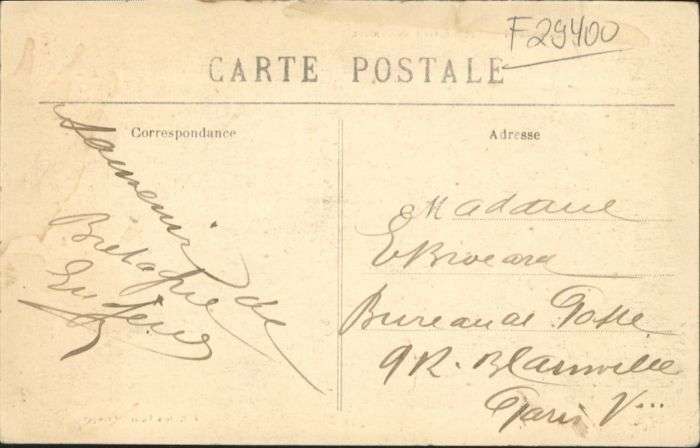 F29400
CARTE POSTALE
Correspondance
Adresse
Souvenir de
Bretagne
Eugène
Madame
E Brocard
Bureau de Poste
9 R. Blainville
Paris V